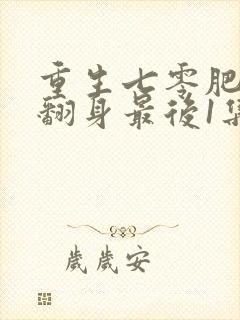 重生七零肥
翻身最後1集
歲歲安